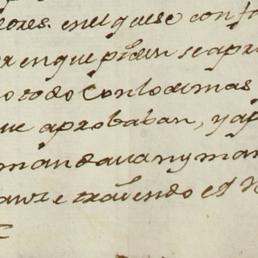 ores. en el que se confo
r en que piden se apr
o todo Con lo demas
ue aprobaban, y ap
mandauan y man
trayendo el